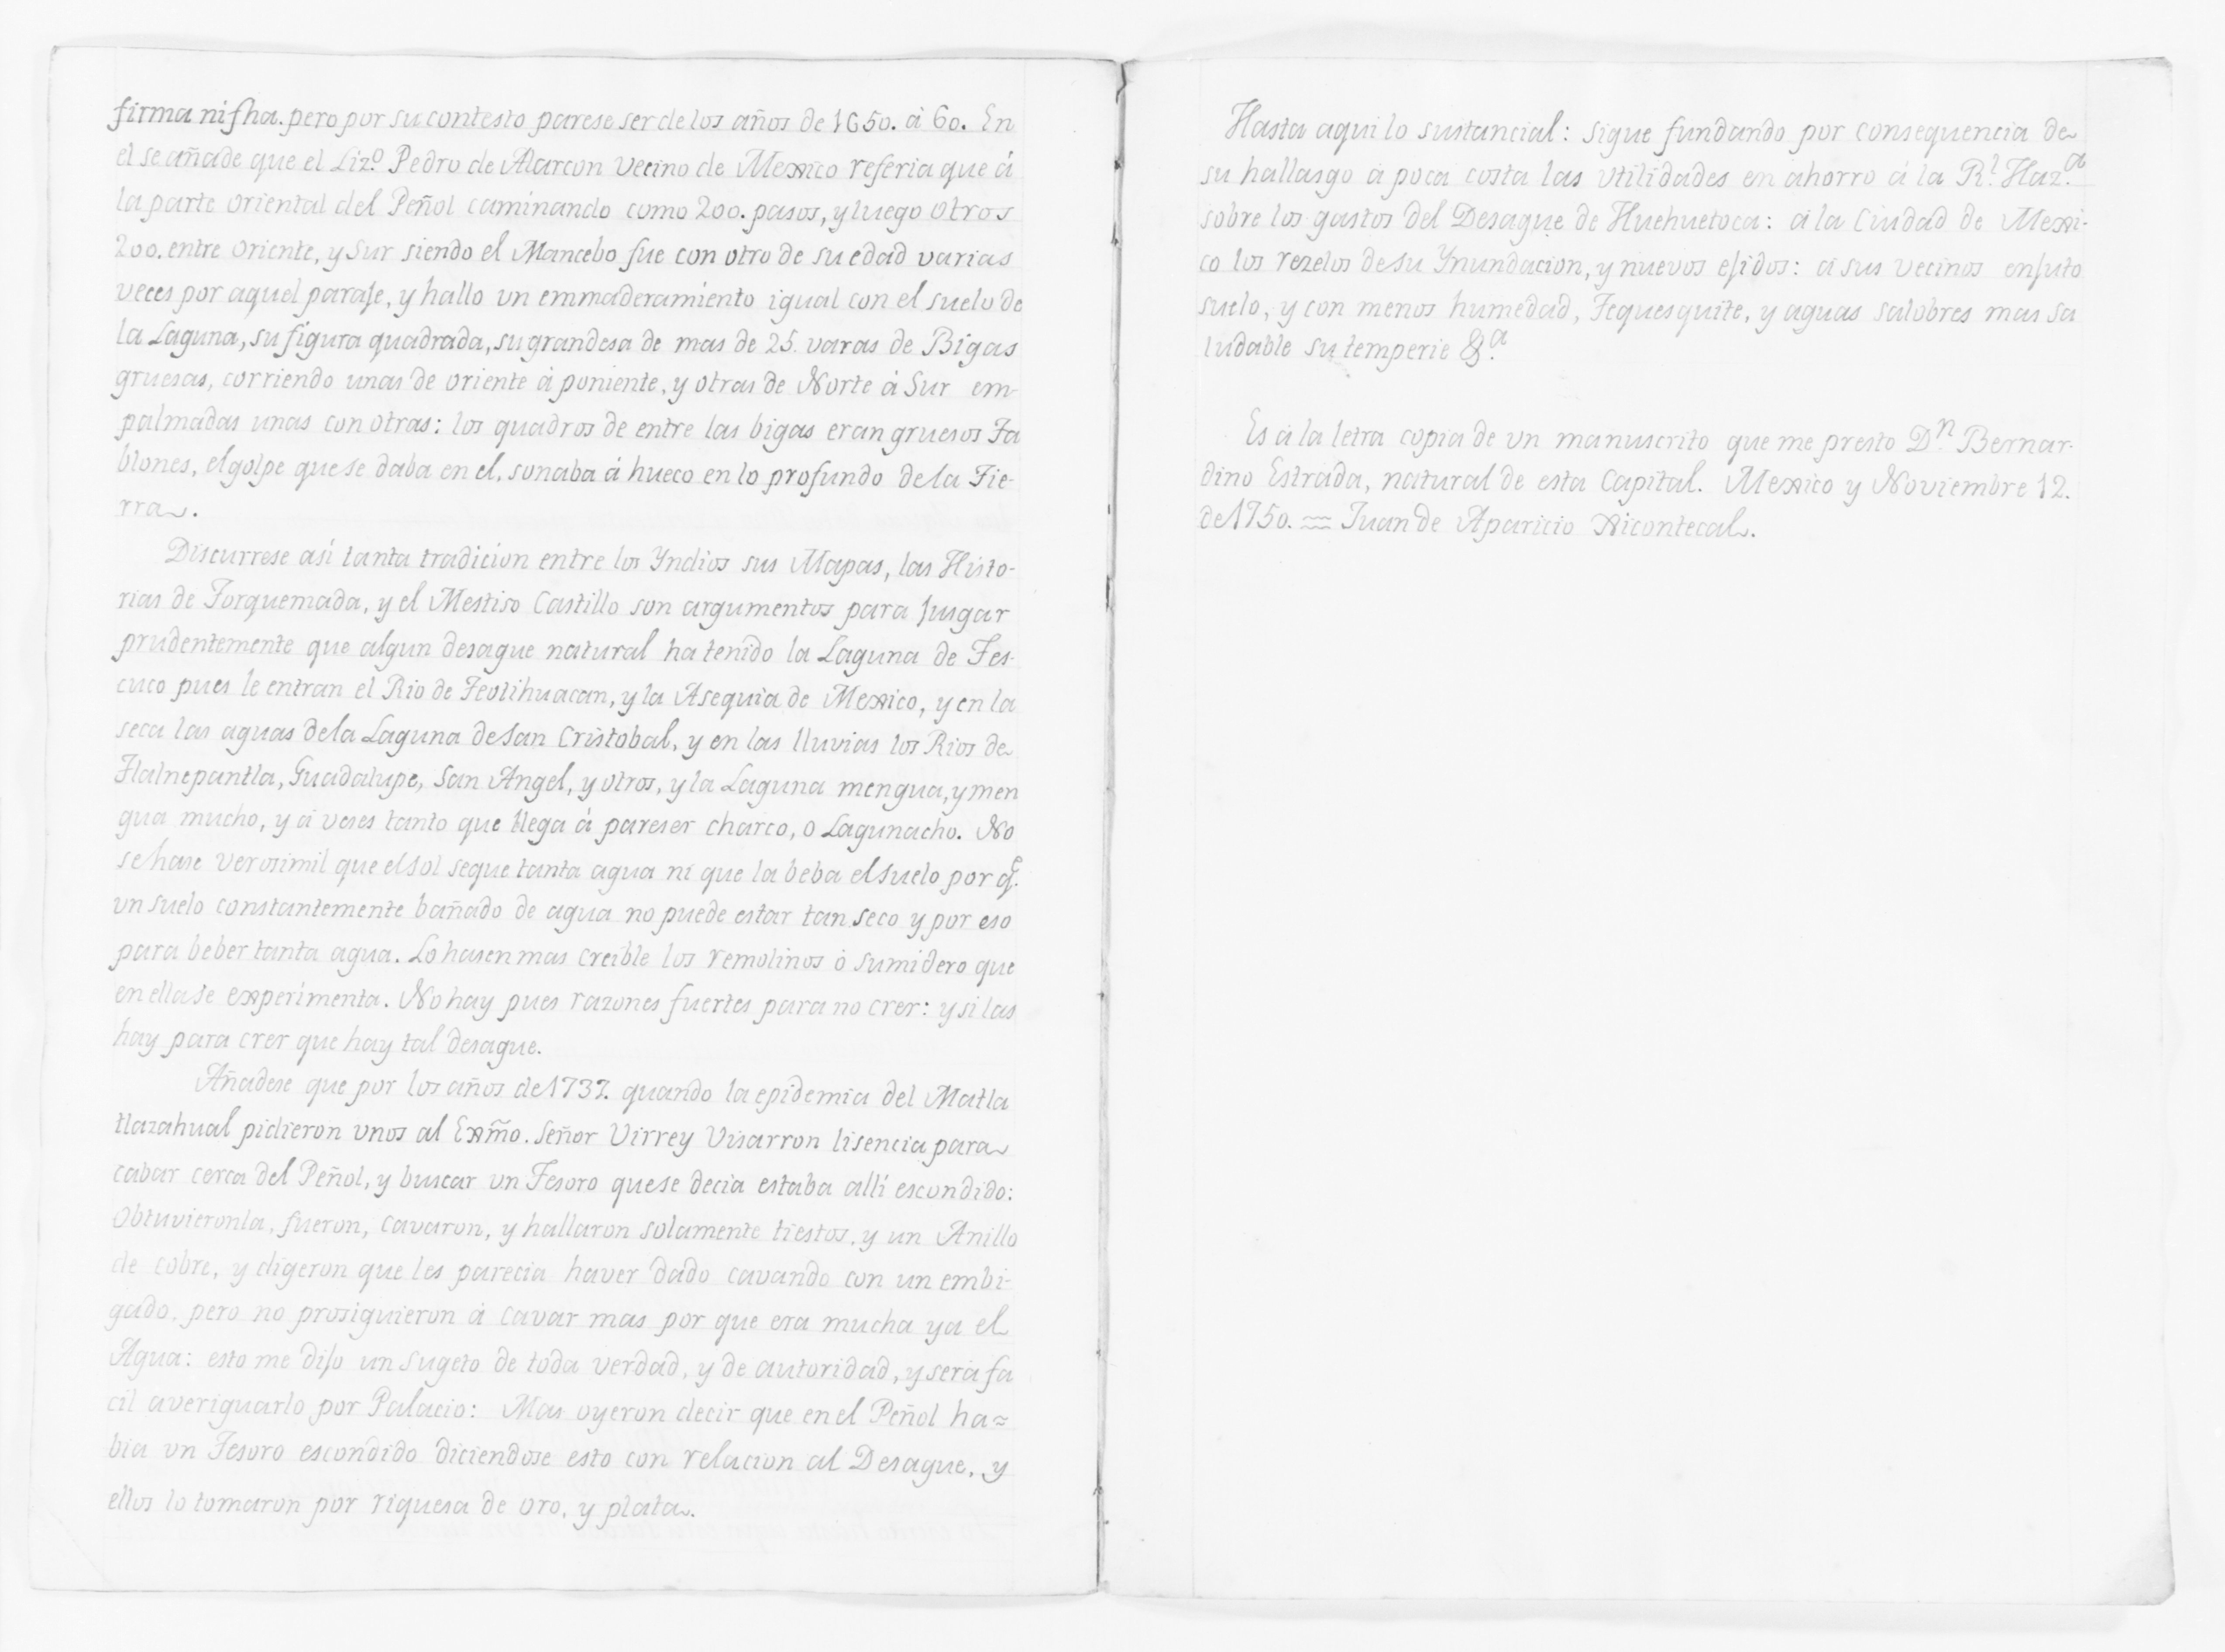 firma ni fha. pero por su contesto parese ser de los años de 1650. á 60. En
el se añade que el Liz.º Pedro de Alarcon vecino de Mexico referia que á
la parte oriental del Peñol caminando como 200. pasos, y luego otros
200. entre oriente, y Sur siendo el Mancebo fue con otro de su edad varias
veces por aquel paraje, y hallo un emmaderamiento igual con el suelo de
la Laguna, su figura quadrada, su grandesa de mas de 25. varas de Bigas
gruesas, corriendo unas de oriente á poniente, y otras de Norte á Sur em-
palmadas unas con otras: los quadros de entre las bigas eran gruesos Ta
blones, el golpe que se daba en el, sonaba á hueco en lo profundo de la Tie-
rra.
Discurrese así tanta tradicion entre los Yndios sus Mapas, las Histo-
rias de Torquemada, y el Mestiso Castillo son argumentos para Jusgar
prudentemente que algun desague natural ha tenido la Laguna de Tes-
cuco pues le entran el Rio de Teotihuacan, y la Asequia de Mexico, y en la
seca las aguas de la Laguna de San Cristobal, y en las lluvias los Rios de
Tlalnepantla, Guadalupe, San Angel, y otros, y la Laguna mengua, y men
gua mucho, y á veses tanto que llega á pareser charco, o Lagunacho. No
se hase verosimil que el sol seque tanta agua ni que la beba el suelo por q.e
un suelo constantemente bañado de agua no puede estar tan seco y por eso
para beber tanta agua. Lo hasen mas creible los remolinos ó sumidero que
en ella se experimenta. No hay pues razones fuertes para no crer: y si las
hay para crer que hay tal desague.
Añadese que por los años de 1737. quando la epidemia del Matla
tlazahual pidieron unos al Exm̃o. Señor Virrey Visarron lisencia para
cabar cerca del Peñol, y buscar un Tesoro que se decia estaba allí escondido:
Obtuvieronla, fueron, cavaron, y hallaron solamente tiestos, y un Anillo
de cobre, y digeron que les parecia haver dado cavando con un embi-
gado, pero no prosiguieron á cavar mas por que era mucha ya el
Agua: esto me dijo un sugeto de toda verdad, y de autoridad, y será fa
cil averiguarlo por Palacio: Mas oyeron decir que en el Peñol ha=
bia un Tesoro escondido diciendose esto con relacion al Desague, y
ellos lo tomaron por riquesa de oro, y plata.
Hasta aqui lo sustancial: sigue fundando por consequencia de
su hallasgo á poca costa las utilidades en ahorro á la R.l Haz.a
sobre los gastos del Desague de Huehuetoca: á la Ciudad de Mexi-
co los rezelos de su Ynundacion, y nuevos ejidos: á sus vecinos enjuto
suelo, y con menos humedad, Tequesquite, y aguas salobres mas sa
ludable su temperie &.a
Es á la letra copia de un manuscrito que me presto D.n Bernar-
dino Estrada, natural de esta Capital. Mexico y Noviembre 12.
de 1750. = Juan de Aparicio Xicontecal.